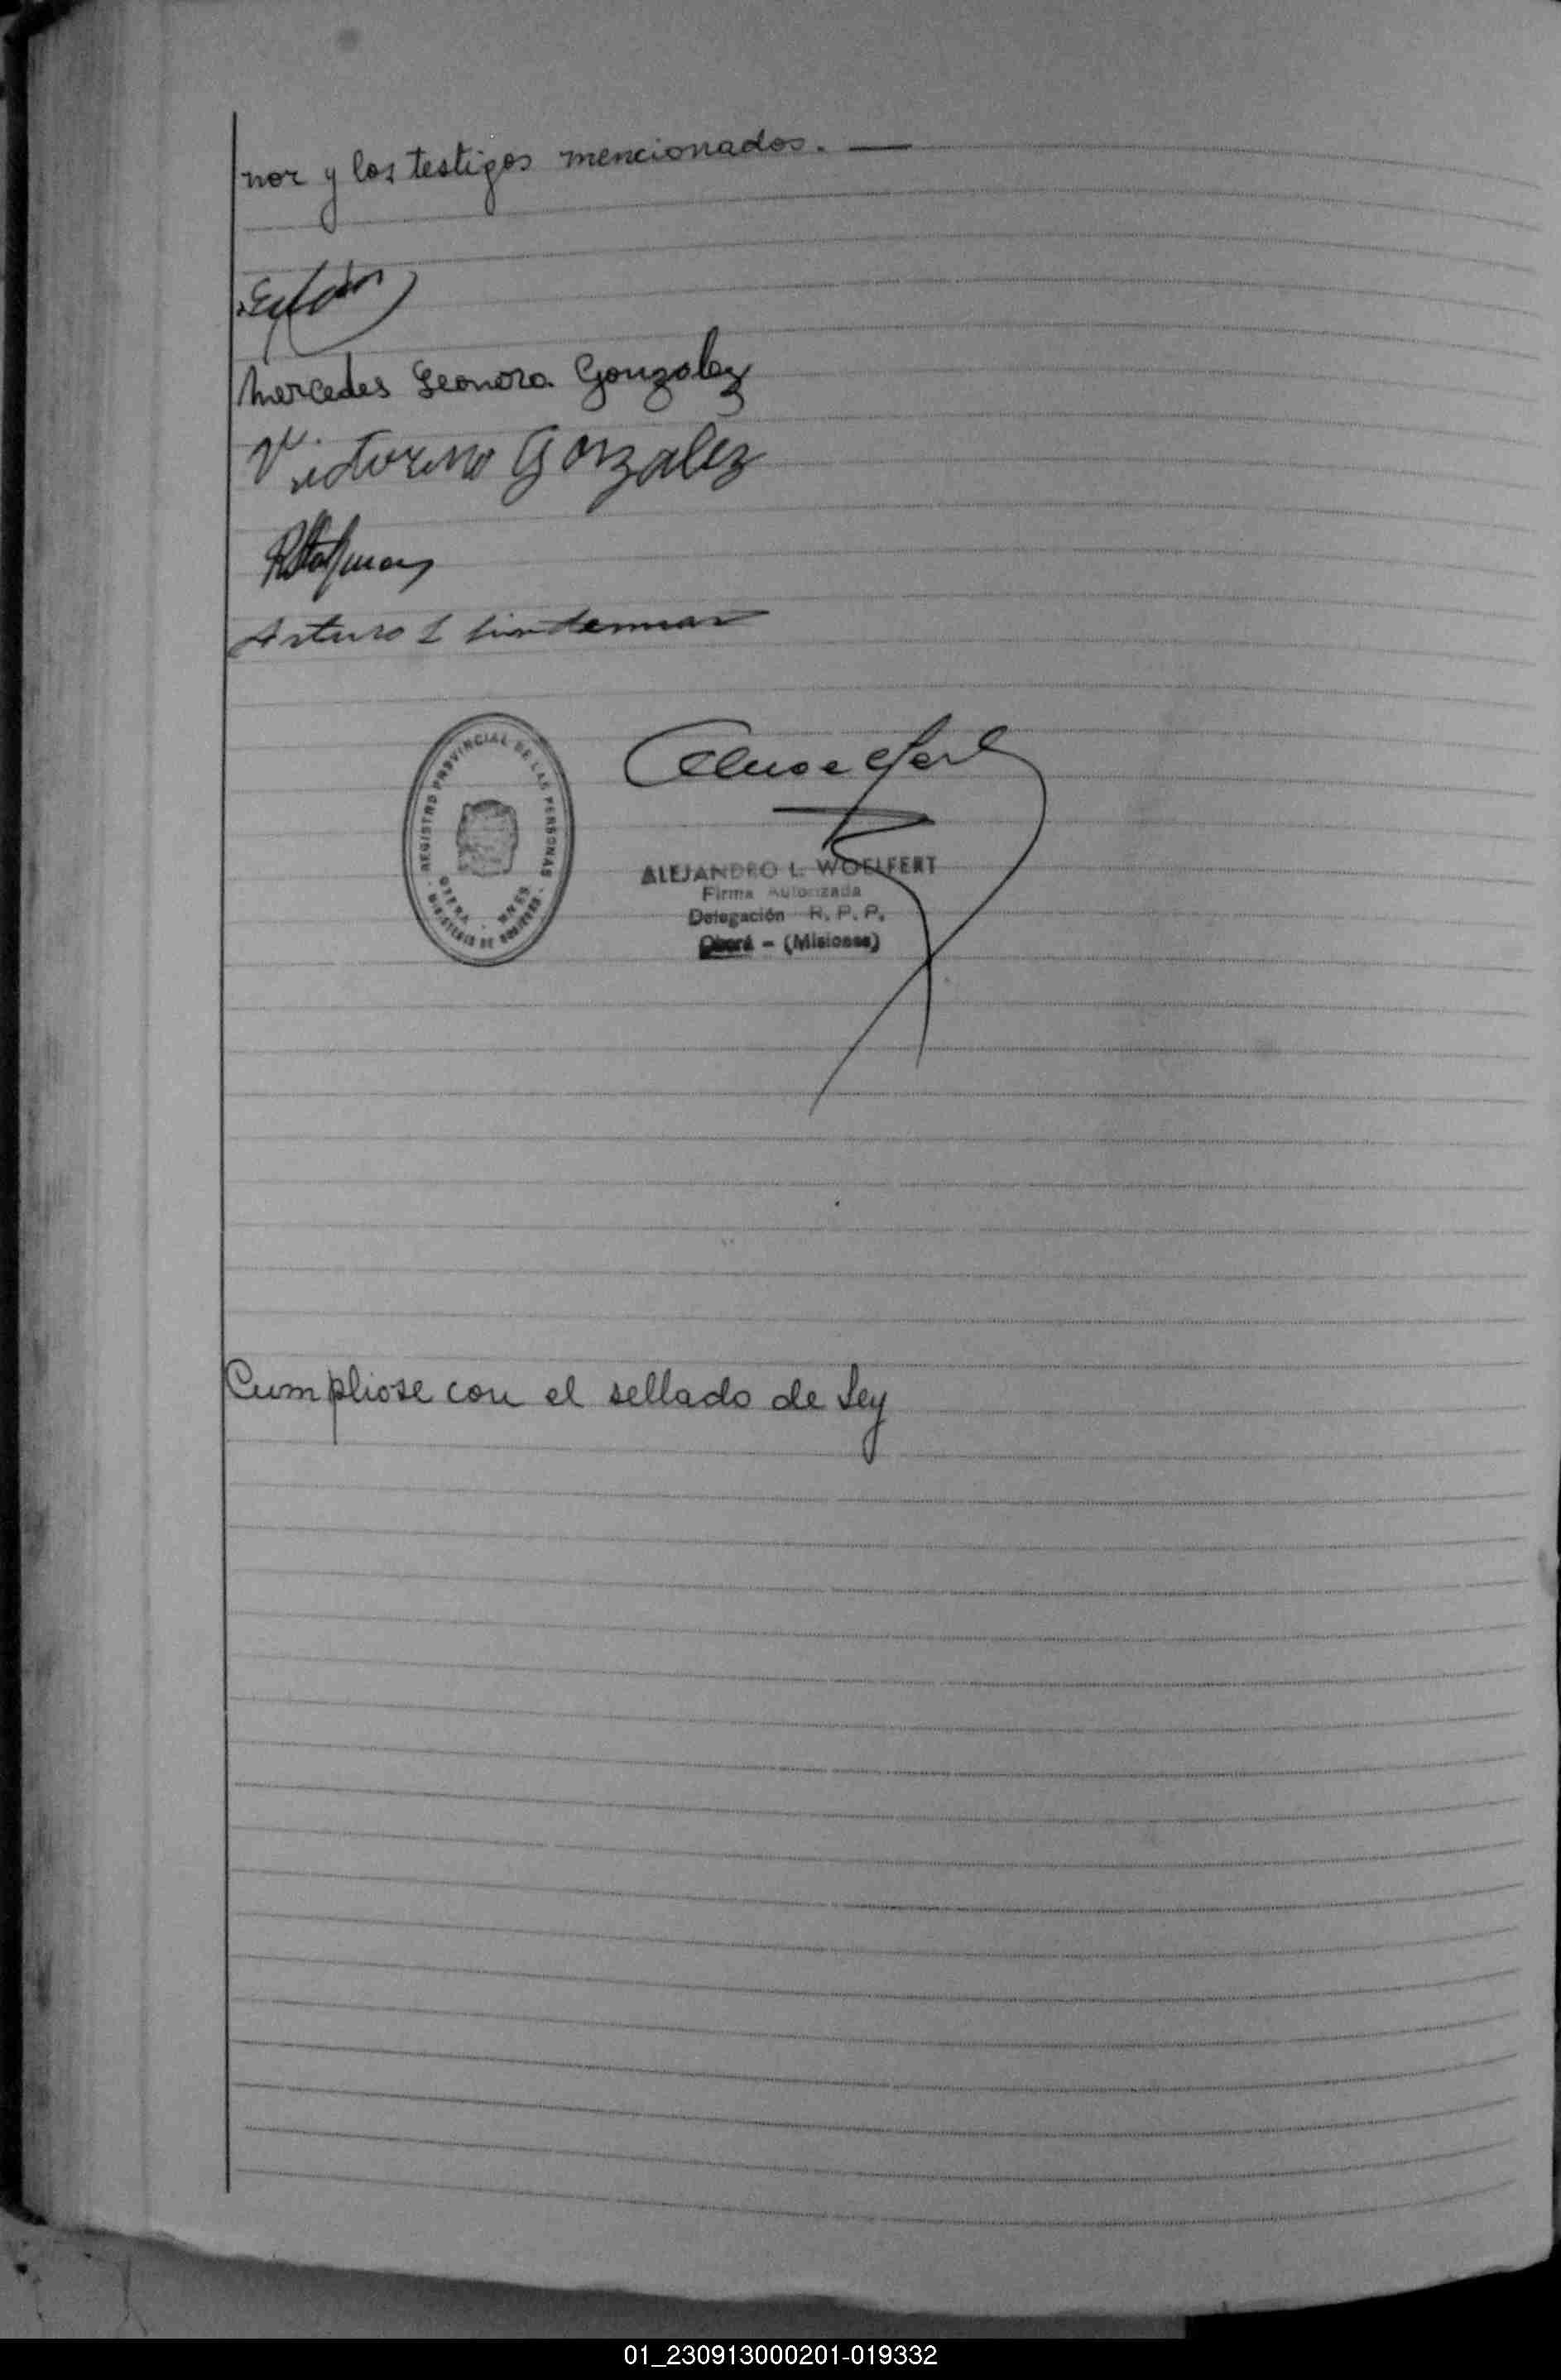 nor y los testigos mencionados. —
Mercedes Leonora Gonzalez
Victorino Gonzalez
Arturo L Lindemman
REGISTRO PROVINCIAL DE LAS PERSONAS
OBERA - MNES
MINISTERIO DE GOBIERNO
ALEJANDRO L. WOELFERT
Firma Autorizada
Delegación R. P. P.
Oberá - (Misiones)
Cumpliose con el sellado de Ley
01_230913000201-019332